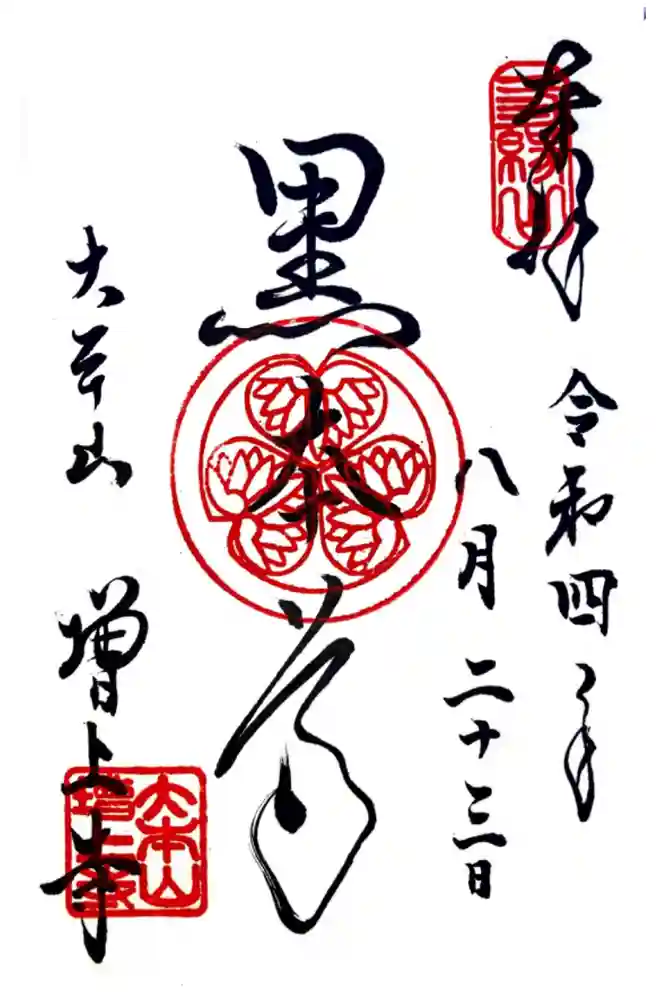 奉拝
三縁山
令和四年
八月二十三日
黒本尊
大本山
増上寺
大本山
増上寺